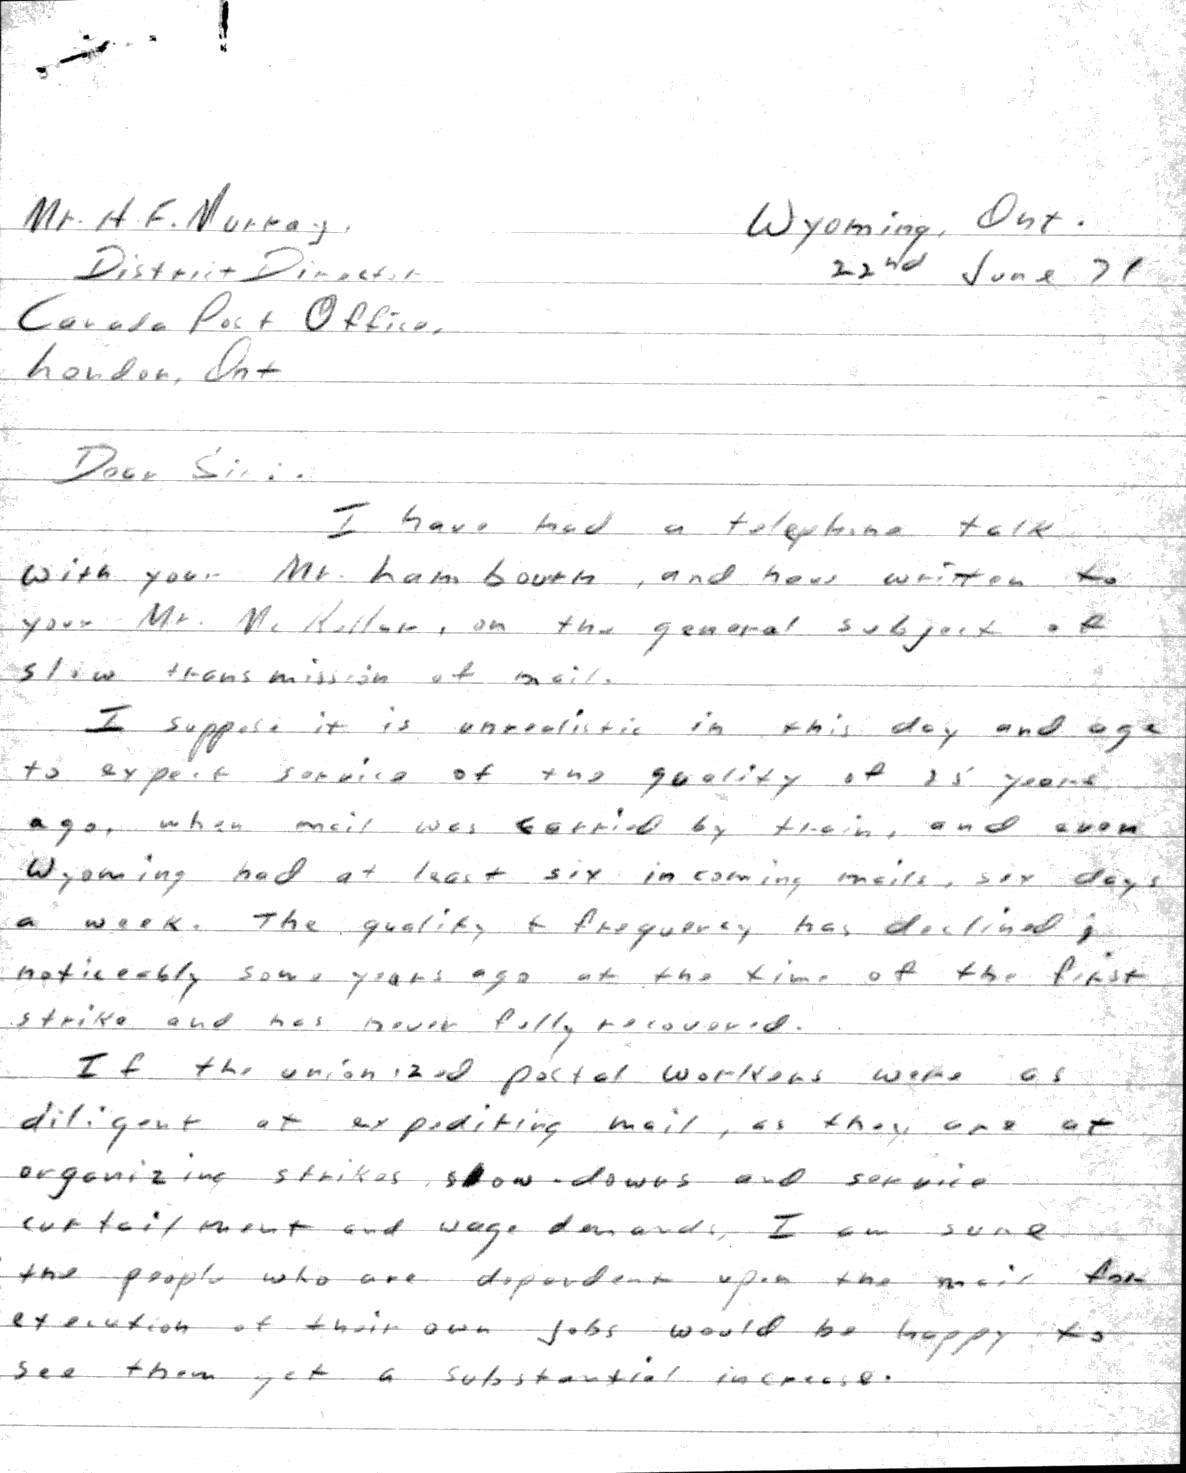 Mr. H. F. Murray,
Wyoming, Ont.
District Director
22nd June 71
Canada Post Office,
London, Ont
Dear Sir:.
I have had a telephone talk
with your Mr. Lambourn, and have written to
your Mr. McKellar, on the general subject of
slow transmission of mail.
I suppose it is unrealistic in this day and age
to expect service of the quality of 25 years
ago, when mail was carried by train, and even
Wyoming had at least six incoming mails, six days
a week. The quality & frequency has declined;
noticeably some years ago at the time of the first
strike and has never fully recovered.
If the unionized postal workers were as
diligent at expediting mail, as they are at
organizing strikes, slow-downs and service
curtailment and wage demands, I am sure
the people who are dependent upon the mail for
execution of their own jobs would be happy to
see them get a substantial increase.